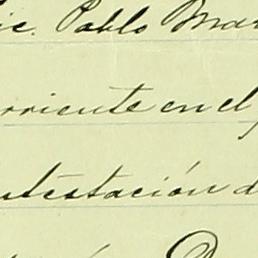 ic. Pablo Mar
rriente en el
ntestación d